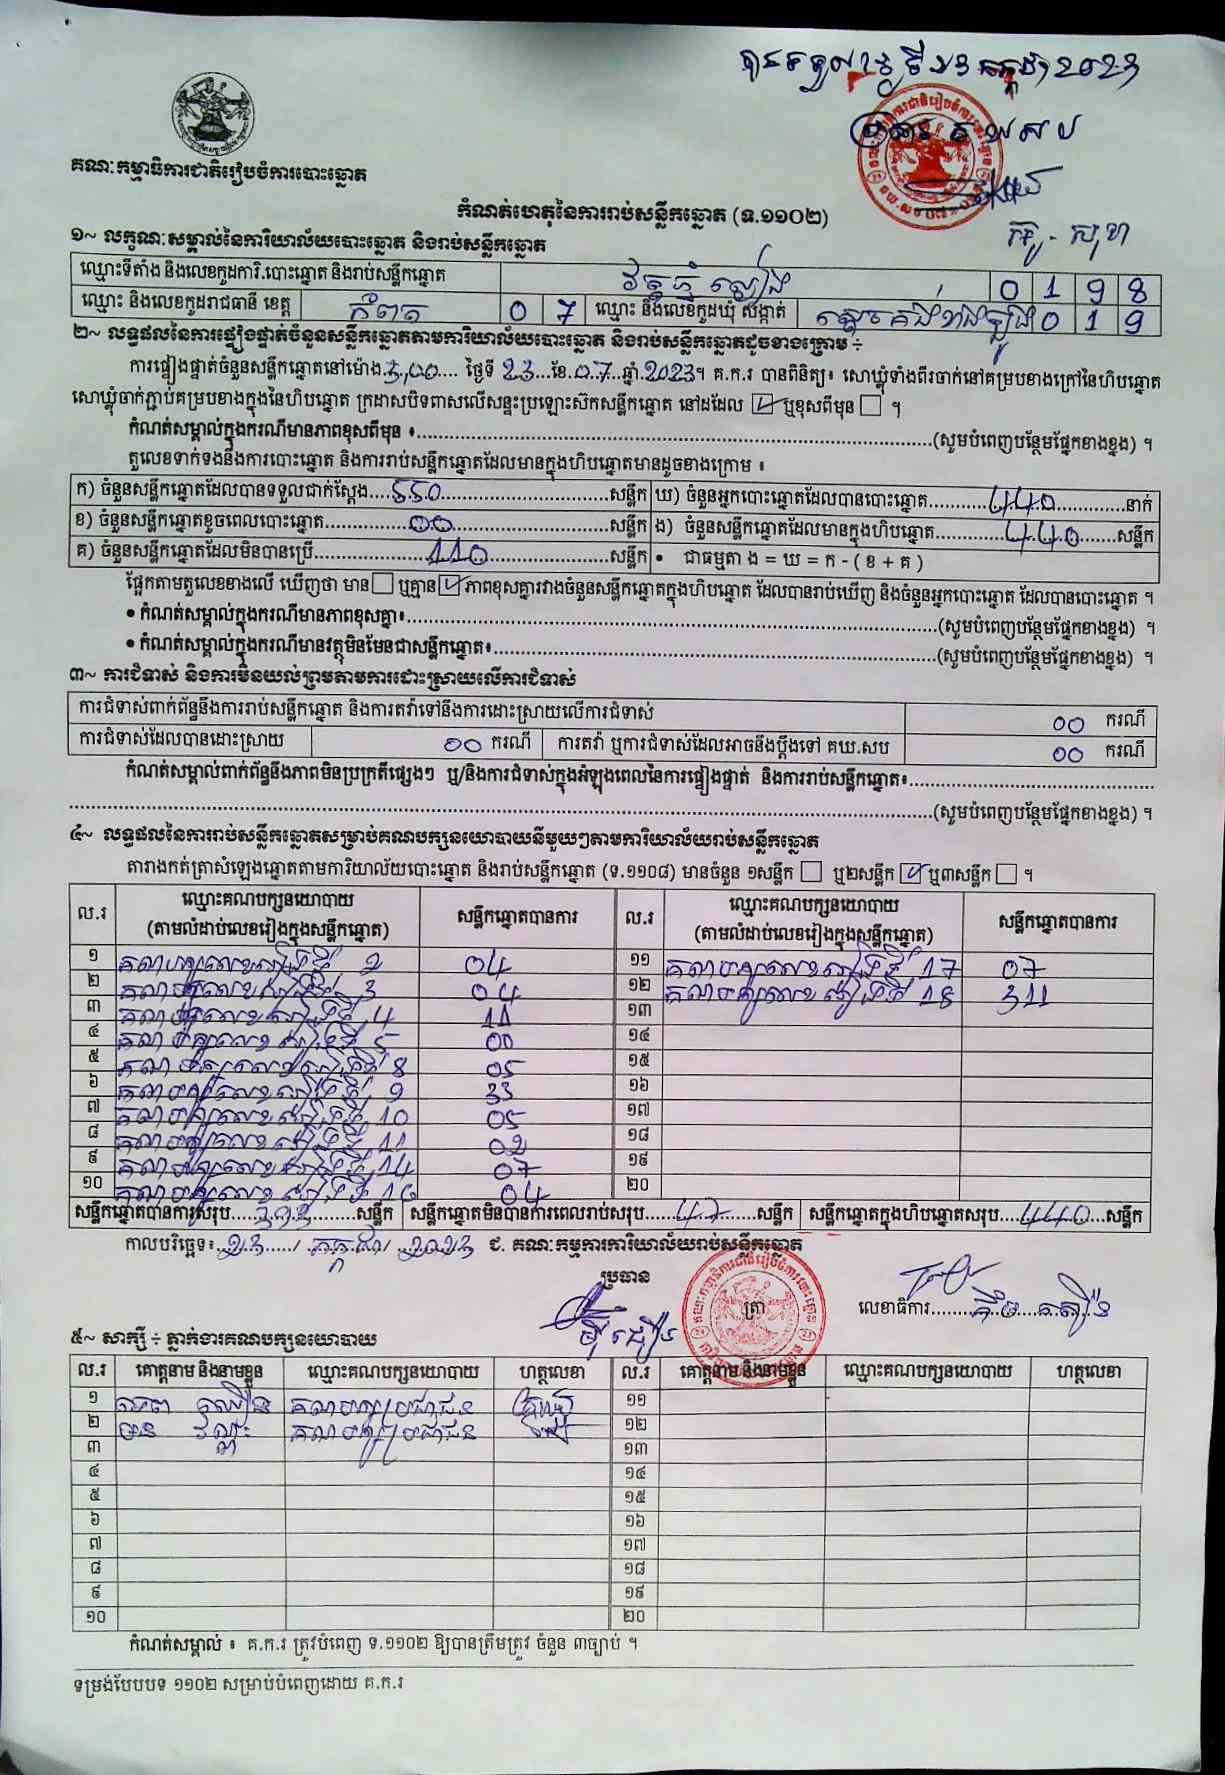 បានទទួលថ្ងៃទី ២៣ កក្កដា 2023
គណៈកម្មាធិការជាតិរៀបចំការបោះឆ្នោត
កំណត់ហេតុនៃការរាប់សន្លឹកឆ្នោត (ទ.១១០២)
១~ លក្ខណៈសម្គាល់នៃការិយាល័យបោះឆ្នោត និងរាប់សន្លឹកឆ្នោត
ឈ្មោះទីតាំង និងលេខកូដការិ.បោះឆ្នោត និងរាប់សន្លឹកឆ្នោត 0 1 9 8
ឈ្មោះ និងលេខកូដរាជធានី ខេត្ត កំពត 0 7 ឈ្មោះ និងលេខកូដឃុំ សង្កាត់ 0 1 9
២~ លទ្ធផលនៃការផ្ទៀងផ្ទាត់ចំនួនសន្លឹកឆ្នោតតាមការិយាល័យបោះឆ្នោត និងរាប់សន្លឹកឆ្នោតដូចខាងក្រោម ÷
ការផ្ទៀងផ្ទាត់ចំនួនសន្លឹកឆ្នោតនៅម៉ោង 3,00 ថ្ងៃទី 23 ខែ 07 ឆ្នាំ 2023។ គ.ក.រ បានពិនិត្យ៖ សោឃ្លុំទាំងពីរចាក់នៅគម្របខាងក្រៅនៃហិបឆ្នោត
សោឃ្លុំចាក់ភ្ជាប់គម្របខាងក្នុងនៃហិបឆ្នោត ក្រដាសបិទពាសលើសន្ទះប្រឡោះស៊កសន្លឹកឆ្នោត នៅដដែល ☑ ឬខុសពីមុន ☐ ។
កំណត់សម្គាល់ក្នុងករណីមានភាពខុសពីមុន ៖ (សូមបំពេញបន្ថែមផ្នែកខាងខ្នង) ។
តួលេខទាក់ទងនឹងការបោះឆ្នោត និងការរាប់សន្លឹកឆ្នោតដែលមានក្នុងហិបឆ្នោតមានដូចខាងក្រោម ៖
ក) ចំនួនសន្លឹកឆ្នោតដែលបានទទួលជាក់ស្តែង 550 សន្លឹក ឃ) ចំនួនអ្នកបោះឆ្នោតដែលបានបោះឆ្នោត 440 នាក់
ខ) ចំនួនសន្លឹកឆ្នោតខូចពេលបោះឆ្នោត 00 សន្លឹក ង) ចំនួនសន្លឹកឆ្នោតដែលមានក្នុងហិបឆ្នោត 440 សន្លឹក
គ) ចំនួនសន្លឹកឆ្នោតដែលមិនបានប្រើ 110 សន្លឹក • ជាធម្មតា ង = ឃ = ក - ( ខ + គ )
ផ្អែកតាមតួលេខខាងលើ ឃើញថា មាន ☐ ឬគ្មាន ☑ ភាពខុសគ្នារវាងចំនួនសន្លឹកឆ្នោតក្នុងហិបឆ្នោត ដែលបានរាប់ឃើញ និងចំនួនអ្នកបោះឆ្នោត ដែលបានបោះឆ្នោត ។
• កំណត់សម្គាល់ក្នុងករណីមានភាពខុសគ្នា៖ (សូមបំពេញបន្ថែមផ្នែកខាងខ្នង) ។
• កំណត់សម្គាល់ក្នុងករណីមានវត្ថុមិនមែនជាសន្លឹកឆ្នោត៖ (សូមបំពេញបន្ថែមផ្នែកខាងខ្នង) ។
៣~ ការជំទាស់ និងការមិនយល់ព្រមតាមការដោះស្រាយលើការជំទាស់
ការជំទាស់ពាក់ព័ន្ធនឹងការរាប់សន្លឹកឆ្នោត និងការតវ៉ាទៅនឹងការដោះស្រាយលើការជំទាស់ 00 ករណី
ការជំទាស់ដែលបានដោះស្រាយ 00 ករណី ការតវ៉ា ឬការជំទាស់ដែលអាចនឹងប្តឹងទៅ គឃ.សប 00 ករណី
កំណត់សម្គាល់ពាក់ព័ន្ធនឹងភាពមិនប្រក្រតីផ្សេងៗ ឬ/និងការជំទាស់ក្នុងអំឡុងពេលនៃការផ្ទៀងផ្ទាត់ និងការរាប់សន្លឹកឆ្នោត៖
(សូមបំពេញបន្ថែមផ្នែកខាងខ្នង) ។
៤~ លទ្ធផលនៃការរាប់សន្លឹកឆ្នោតសម្រាប់គណបក្សនយោបាយនីមួយៗតាមការិយាល័យរាប់សន្លឹកឆ្នោត
តារាងកត់ត្រាសំឡេងឆ្នោតតាមការិយាល័យបោះឆ្នោត និងរាប់សន្លឹកឆ្នោត (ទ.១១០៨) មានចំនួន ១សន្លឹក ☐ ឬ២សន្លឹក ☑ ឬ៣សន្លឹក ☐ ។
ល.រ ឈ្មោះគណបក្សនយោបាយ (តាមលំដាប់លេខរៀងក្នុងសន្លឹកឆ្នោត) សន្លឹកឆ្នោតបានការ ល.រ ឈ្មោះគណបក្សនយោបាយ (តាមលំដាប់លេខរៀងក្នុងសន្លឹកឆ្នោត) សន្លឹកឆ្នោតបានការ
១ គណបក្សលេខរៀងទី 2 04 ១១ គណបក្សលេខរៀងទី 17 07
២ គណបក្សលេខរៀងទី 3 04 ១២ គណបក្សលេខរៀងទី 18 311
៣ គណបក្សលេខរៀងទី 4 11 ១៣
៤ គណបក្សលេខរៀងទី 5 00 ១៤
៥ គណបក្សលេខរៀងទី 8 05 ១៥
៦ គណបក្សលេខរៀងទី 9 33 ១៦
៧ គណបក្សលេខរៀងទី 10 05 ១៧
៨ គណបក្សលេខរៀងទី 11 02 ១៨
៩ គណបក្សលេខរៀងទី 14 07 ១៩
១០ គណបក្សលេខរៀងទី 16 04 ២០
សន្លឹកឆ្នោតបានការសរុប 393 សន្លឹក សន្លឹកឆ្នោតមិនបានការពេលរាប់សរុប 47 សន្លឹក សន្លឹកឆ្នោតក្នុងហិបឆ្នោតសរុប 440 សន្លឹក
កាលបរិច្ឆេទ៖ 23 / កក្កដា / 2023 ជ. គណៈកម្មការការិយាល័យរាប់សន្លឹកឆ្នោត
ប្រធាន
ត្រា លេខាធិការ
៥~ សាក្សី ÷ ភ្នាក់ងារគណបក្សនយោបាយ
ល.រ គោត្តនាម និងនាមខ្លួន ឈ្មោះគណបក្សនយោបាយ ហត្ថលេខា ល.រ គោត្តនាម និងនាមខ្លួន ឈ្មោះគណបក្សនយោបាយ ហត្ថលេខា
១ គណបក្សប្រជាជន ១១
២ គណបក្សប្រជាជន ១២
៣ ១៣
៤ ១៤
៥ ១៥
៦ ១៦
៧ ១៧
៨ ១៨
៩ ១៩
១០ ២០
កំណត់សម្គាល់ ៖ គ.ក.រ ត្រូវបំពេញ ទ.១១០២ ឱ្យបានត្រឹមត្រូវ ចំនួន ៣ច្បាប់ ។
ទម្រង់បែបបទ ១១០២ សម្រាប់បំពេញដោយ គ.ក.រ